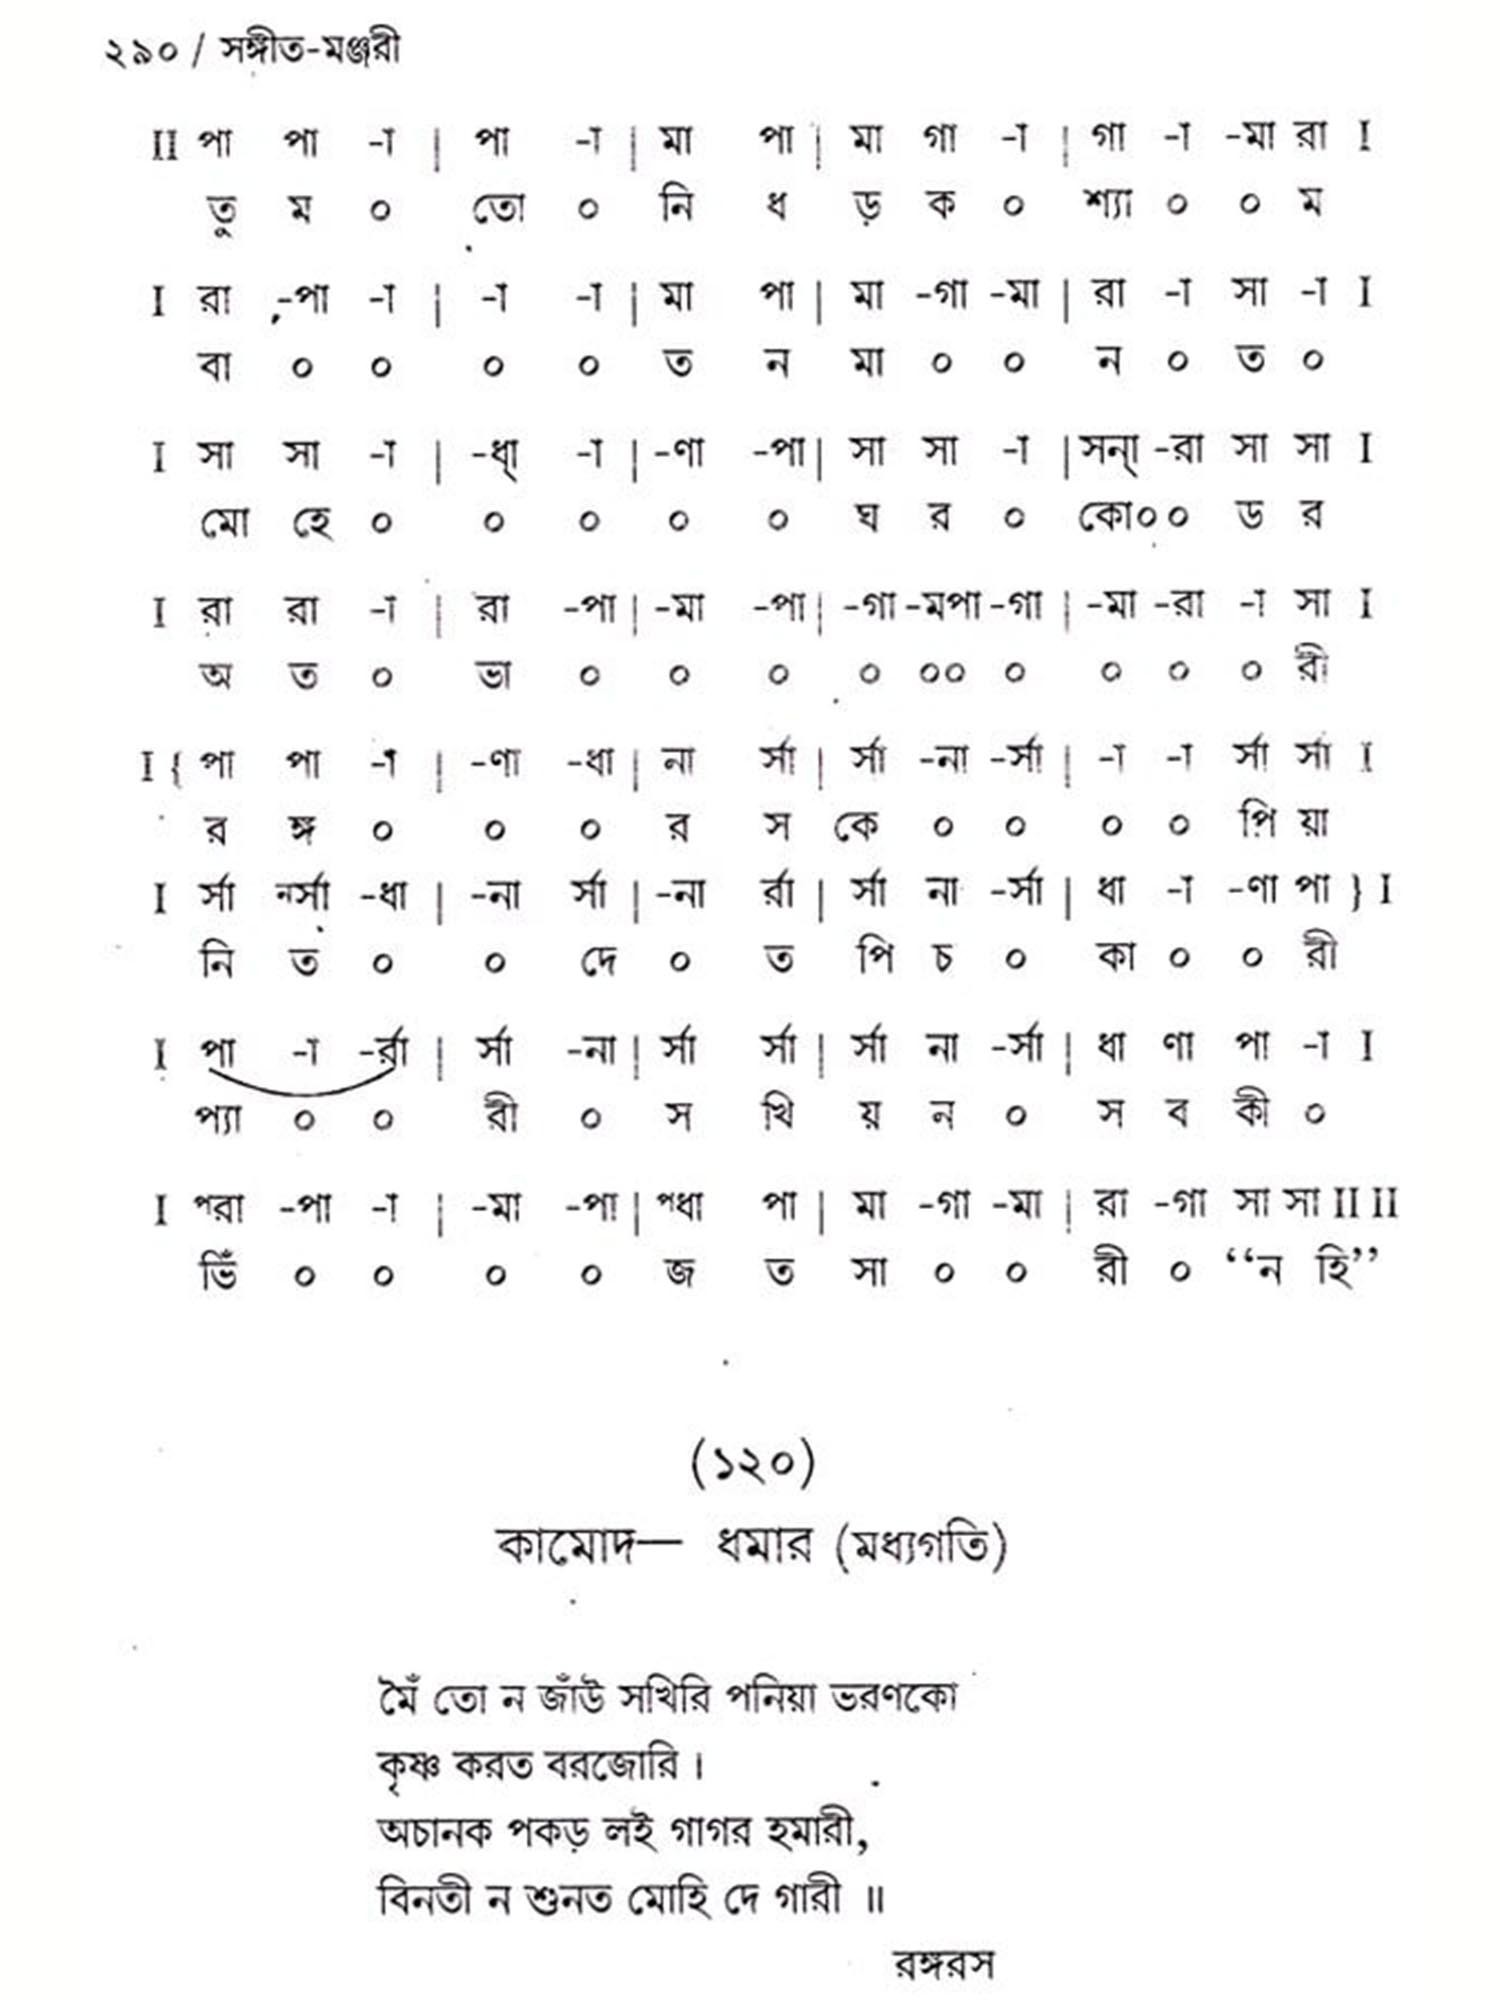 ২৯০ / সঙ্গীত-মঞ্জরী
II পা পা -া | পা -া | মা পা | মা গা -া | গা -া -মা রা I
তু ম ০ তো ০ নি ধ ড় ক ০ শ্যা ০ ০ ম
I রা -পা -া | -া -া | মা পা | মা -গা -মা | রা -া সা -া I
বা ০ ০ ০ ০ ত ন মা ০ ০ ন ০ ত ০
I সা সা -া | -ধ্া -া | -ণা -পা | সা সা -া | সন্া -রা সা সা I
মো হে ০ ০ ০ ০ ০ ঘ র ০ কো০ ০ ড র
I রা রা -া | রা -পা | -মা -পা | -গা -মপা -গা | -মা -রা -া সা I
অ ত ০ ভা ০ ০ ০ ০ ০০ ০ ০ ০ ০ রী
I { পা পা -া | -ণা -ধা | না র্সা | র্সা -না -র্সা | -া -া র্সা র্সা I
র ঙ্গ ০ ০ ০ র স কে ০ ০ ০ ০ পি য়া
I র্সা নর্সা -ধা | -না র্সা | -না র্রা | র্সা না -র্সা | ধা -া -ণা পা } I
নি ত ০ ০ দে ০ ত পি চ ০ কা ০ ০ রী
I পা -া -র্রা | র্সা -না | র্সা র্সা | র্সা না -র্সা | ধা ণা পা -া I
প্যা ০ ০ রী ০ স খি য় ন ০ স ব কী ০
I পরা -পা -া | -মা -পা | পধা পা | মা -গা -মা | রা -গা সা সা II II
ভিঁ ০ ০ ০ ০ জ ত সা ০ ০ রী ০ “ন হি”
(১২০)
কামোদ— ধমার (মধ্যগতি)
মৈঁ তো ন জাঁউ সখিরি পনিয়া ভরণকো
কৃষ্ণ করত বরজোরি ।
অচানক পকড় লই গাগর হমারী,
বিনতী ন শুনত মোহি দে গারী ॥
রঙ্গরস